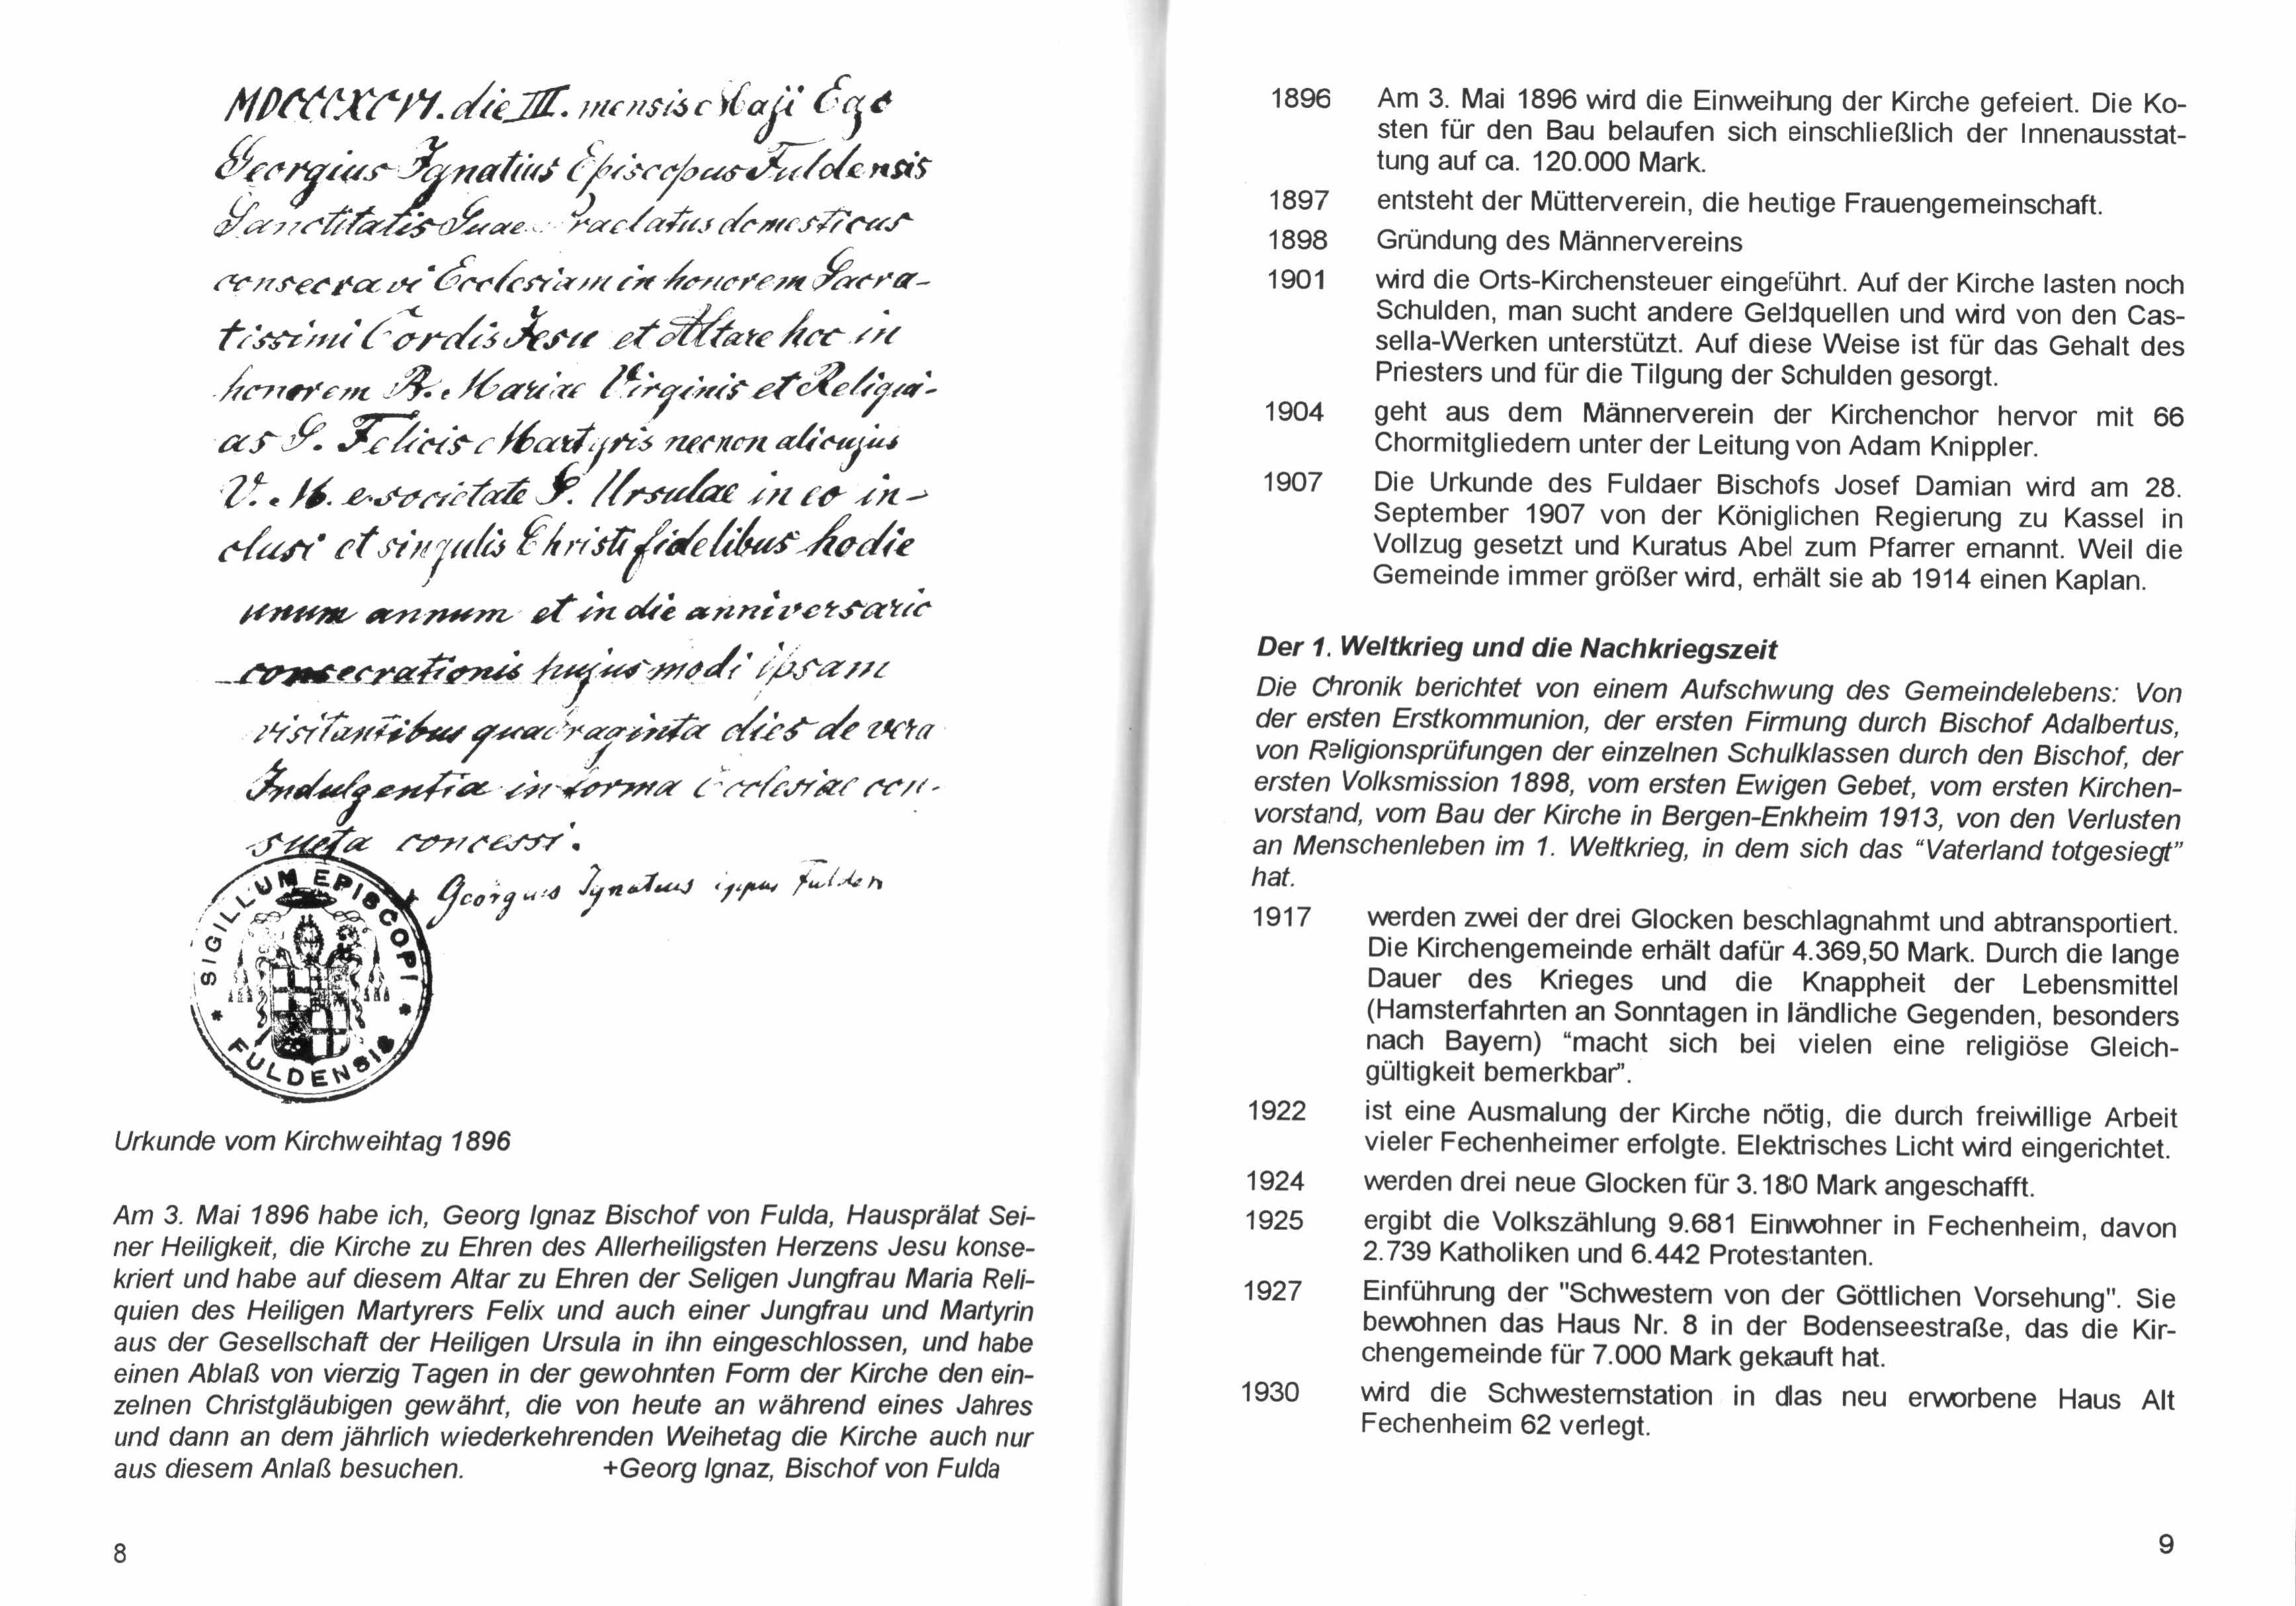 MDCCCXCVI. die III. mensis Maji Ego
Georgius Ignatius Episcopus Fuldensis
Sanctitatis Suae Praelatus domesticus
consecravi Ecclesiam in honorem Sacra-
tissimi Cordis Jesu et Altare hoc in
honorem B. Mariae Virginis et Reliqui-
as S. Felicis Martyris necnon alicujus
V. M. e societate S. Ursulae in eo in-
clusi et singulis Christi fidelibus hodie
unum annum et in die anniversario
consecrationis hujusmodi ipsam
visitantibus quadraginta dies de vera
Indulgentia in forma Ecclesiae con-
sueta concessi.
+ Georgius Ignatius eppus Fulden
SIGILLUM EPISCOPI
* FULDENSIS *
Urkunde vom Kirchweihtag 1896
Am 3. Mai 1896 habe ich, Georg Ignaz Bischof von Fulda, Hausprälat Sei-
ner Heiligkeit, die Kirche zu Ehren des Allerheiligsten Herzens Jesu konse-
kriert und habe auf diesem Altar zu Ehren der Seligen Jungfrau Maria Reli-
quien des Heiligen Martyrers Felix und auch einer Jungfrau und Martyrin
aus der Gesellschaft der Heiligen Ursula in ihn eingeschlossen, und habe
einen Ablaß von vierzig Tagen in der gewohnten Form der Kirche den ein-
zelnen Christgläubigen gewährt, die von heute an während eines Jahres
und dann an dem jährlich wiederkehrenden Weihetag die Kirche auch nur
aus diesem Anlaß besuchen. +Georg Ignaz, Bischof von Fulda
8
1896 Am 3. Mai 1896 wird die Einweihung der Kirche gefeiert. Die Ko-
sten für den Bau belaufen sich einschließlich der Innenausstat-
tung auf ca. 120.000 Mark.
1897 entsteht der Mütterverein, die heutige Frauengemeinschaft.
1898 Gründung des Männervereins
1901 wird die Orts-Kirchensteuer eingeführt. Auf der Kirche lasten noch
Schulden, man sucht andere Geldquellen und wird von den Cas-
sella-Werken unterstützt. Auf diese Weise ist für das Gehalt des
Priesters und für die Tilgung der Schulden gesorgt.
1904 geht aus dem Männerverein der Kirchenchor hervor mit 66
Chormitgliedern unter der Leitung von Adam Knippler.
1907 Die Urkunde des Fuldaer Bischofs Josef Damian wird am 28.
September 1907 von der Königlichen Regierung zu Kassel in
Vollzug gesetzt und Kuratus Abel zum Pfarrer ernannt. Weil die
Gemeinde immer größer wird, erhält sie ab 1914 einen Kaplan.
Der 1. Weltkrieg und die Nachkriegszeit
Die Chronik berichtet von einem Aufschwung des Gemeindelebens: Von
der ersten Erstkommunion, der ersten Firmung durch Bischof Adalbertus,
von Religionsprüfungen der einzelnen Schulklassen durch den Bischof, der
ersten Volksmission 1898, vom ersten Ewigen Gebet, vom ersten Kirchen-
vorstand, vom Bau der Kirche in Bergen-Enkheim 1913, von den Verlusten
an Menschenleben im 1. Weltkrieg, in dem sich das “Vaterland totgesiegt”
hat.
1917 werden zwei der drei Glocken beschlagnahmt und abtransportiert.
Die Kirchengemeinde erhält dafür 4.369,50 Mark. Durch die lange
Dauer des Krieges und die Knappheit der Lebensmittel
(Hamsterfahrten an Sonntagen in ländliche Gegenden, besonders
nach Bayern) “macht sich bei vielen eine religiöse Gleich-
gültigkeit bemerkbar”.
1922 ist eine Ausmalung der Kirche nötig, die durch freiwillige Arbeit
vieler Fechenheimer erfolgte. Elektrisches Licht wird eingerichtet.
1924 werden drei neue Glocken für 3.180 Mark angeschafft.
1925 ergibt die Volkszählung 9.681 Einwohner in Fechenheim, davon
2.739 Katholiken und 6.442 Protestanten.
1927 Einführung der "Schwestern von der Göttlichen Vorsehung". Sie
bewohnen das Haus Nr. 8 in der Bodenseestraße, das die Kir-
chengemeinde für 7.000 Mark gekauft hat.
1930 wird die Schwesternstation in das neu erworbene Haus Alt
Fechenheim 62 verlegt.
9